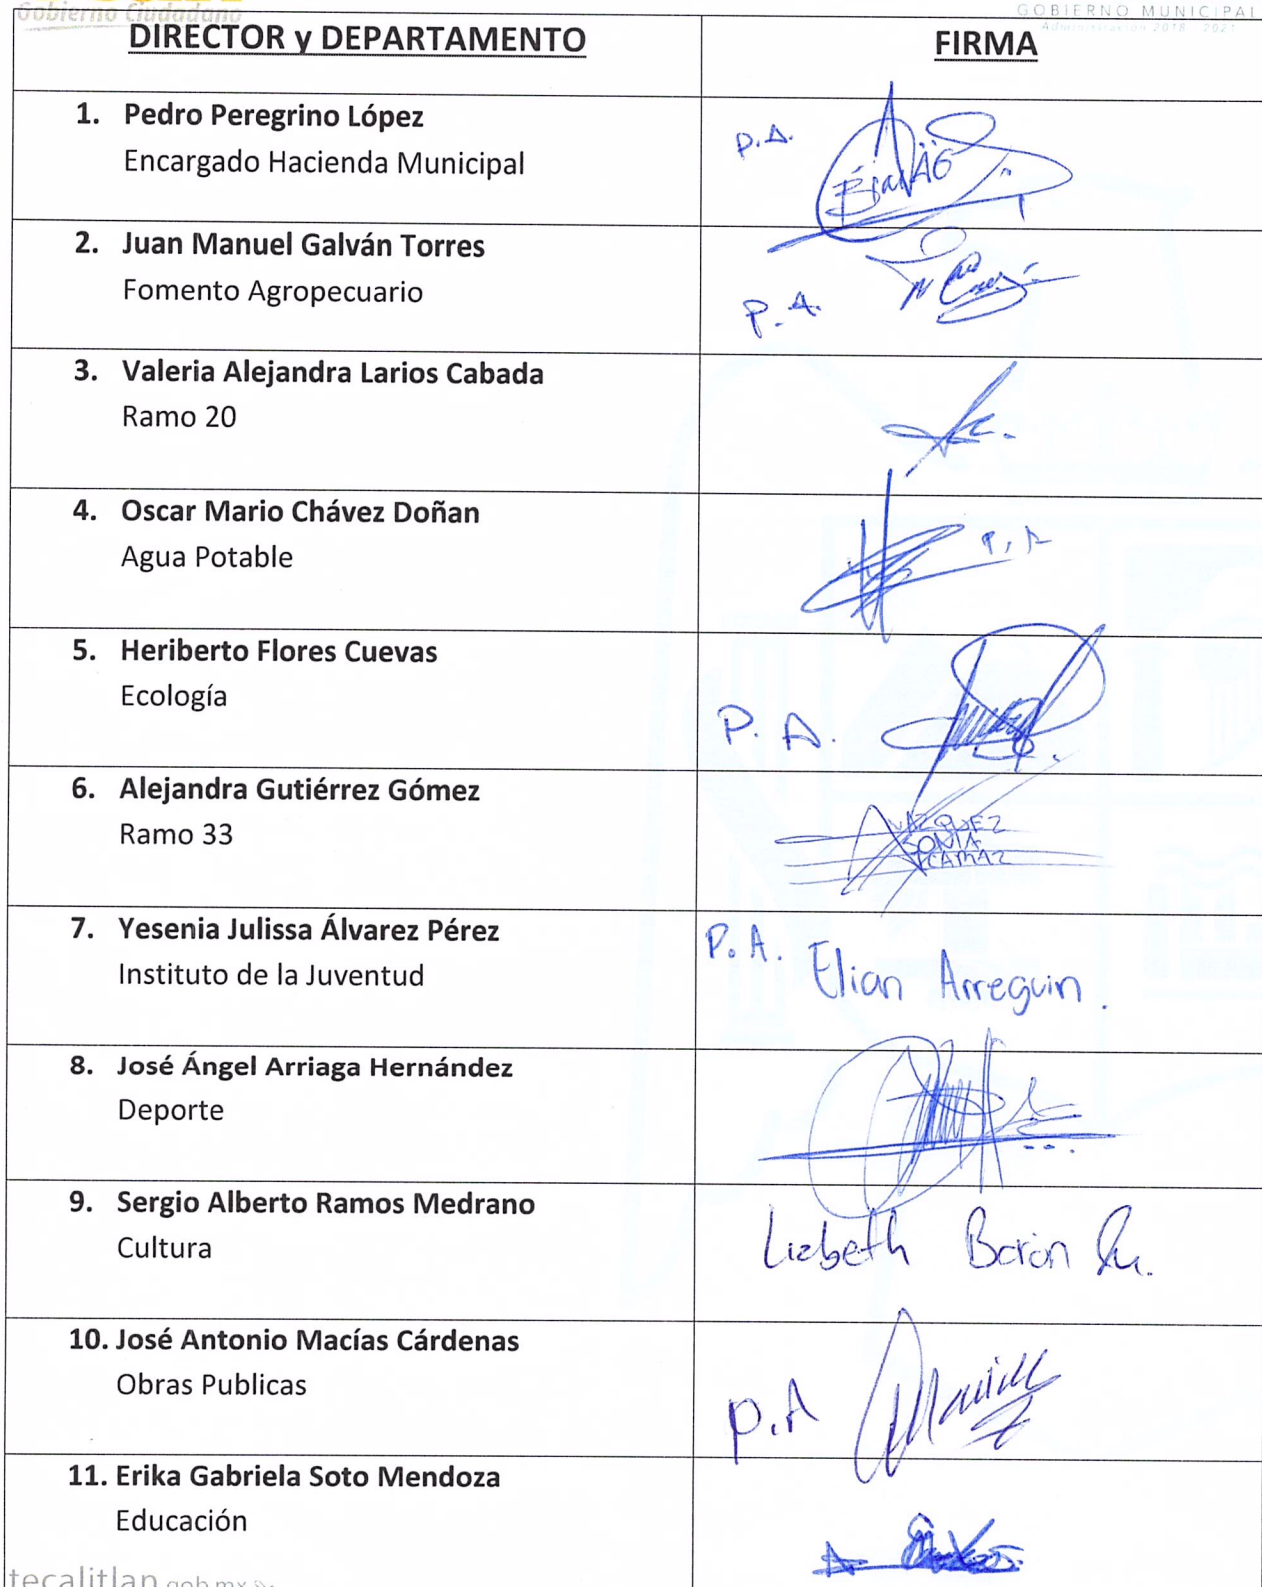 Gobierno Ciudadano
GOBIERNO MUNICIPAL
Administración 2018 - 2021
DIRECTOR y DEPARTAMENTO
FIRMA
1. Pedro Peregrino López
Encargado Hacienda Municipal
P.A.
2. Juan Manuel Galván Torres
Fomento Agropecuario
P.A.
3. Valeria Alejandra Larios Cabada
Ramo 20
4. Oscar Mario Chávez Doñan
Agua Potable
5. Heriberto Flores Cuevas
Ecología
P. A.
6. Alejandra Gutiérrez Gómez
Ramo 33
VAZQUEZ
SONIA
7. Yesenia Julissa Álvarez Pérez
Instituto de la Juventud
P. A. Elian Arreguin.
8. José Ángel Arriaga Hernández
Deporte
9. Sergio Alberto Ramos Medrano
Cultura
Lizbeth Barón
10. José Antonio Macías Cárdenas
Obras Publicas
P.A
11. Erika Gabriela Soto Mendoza
Educación
tecalitlan.gob.mx